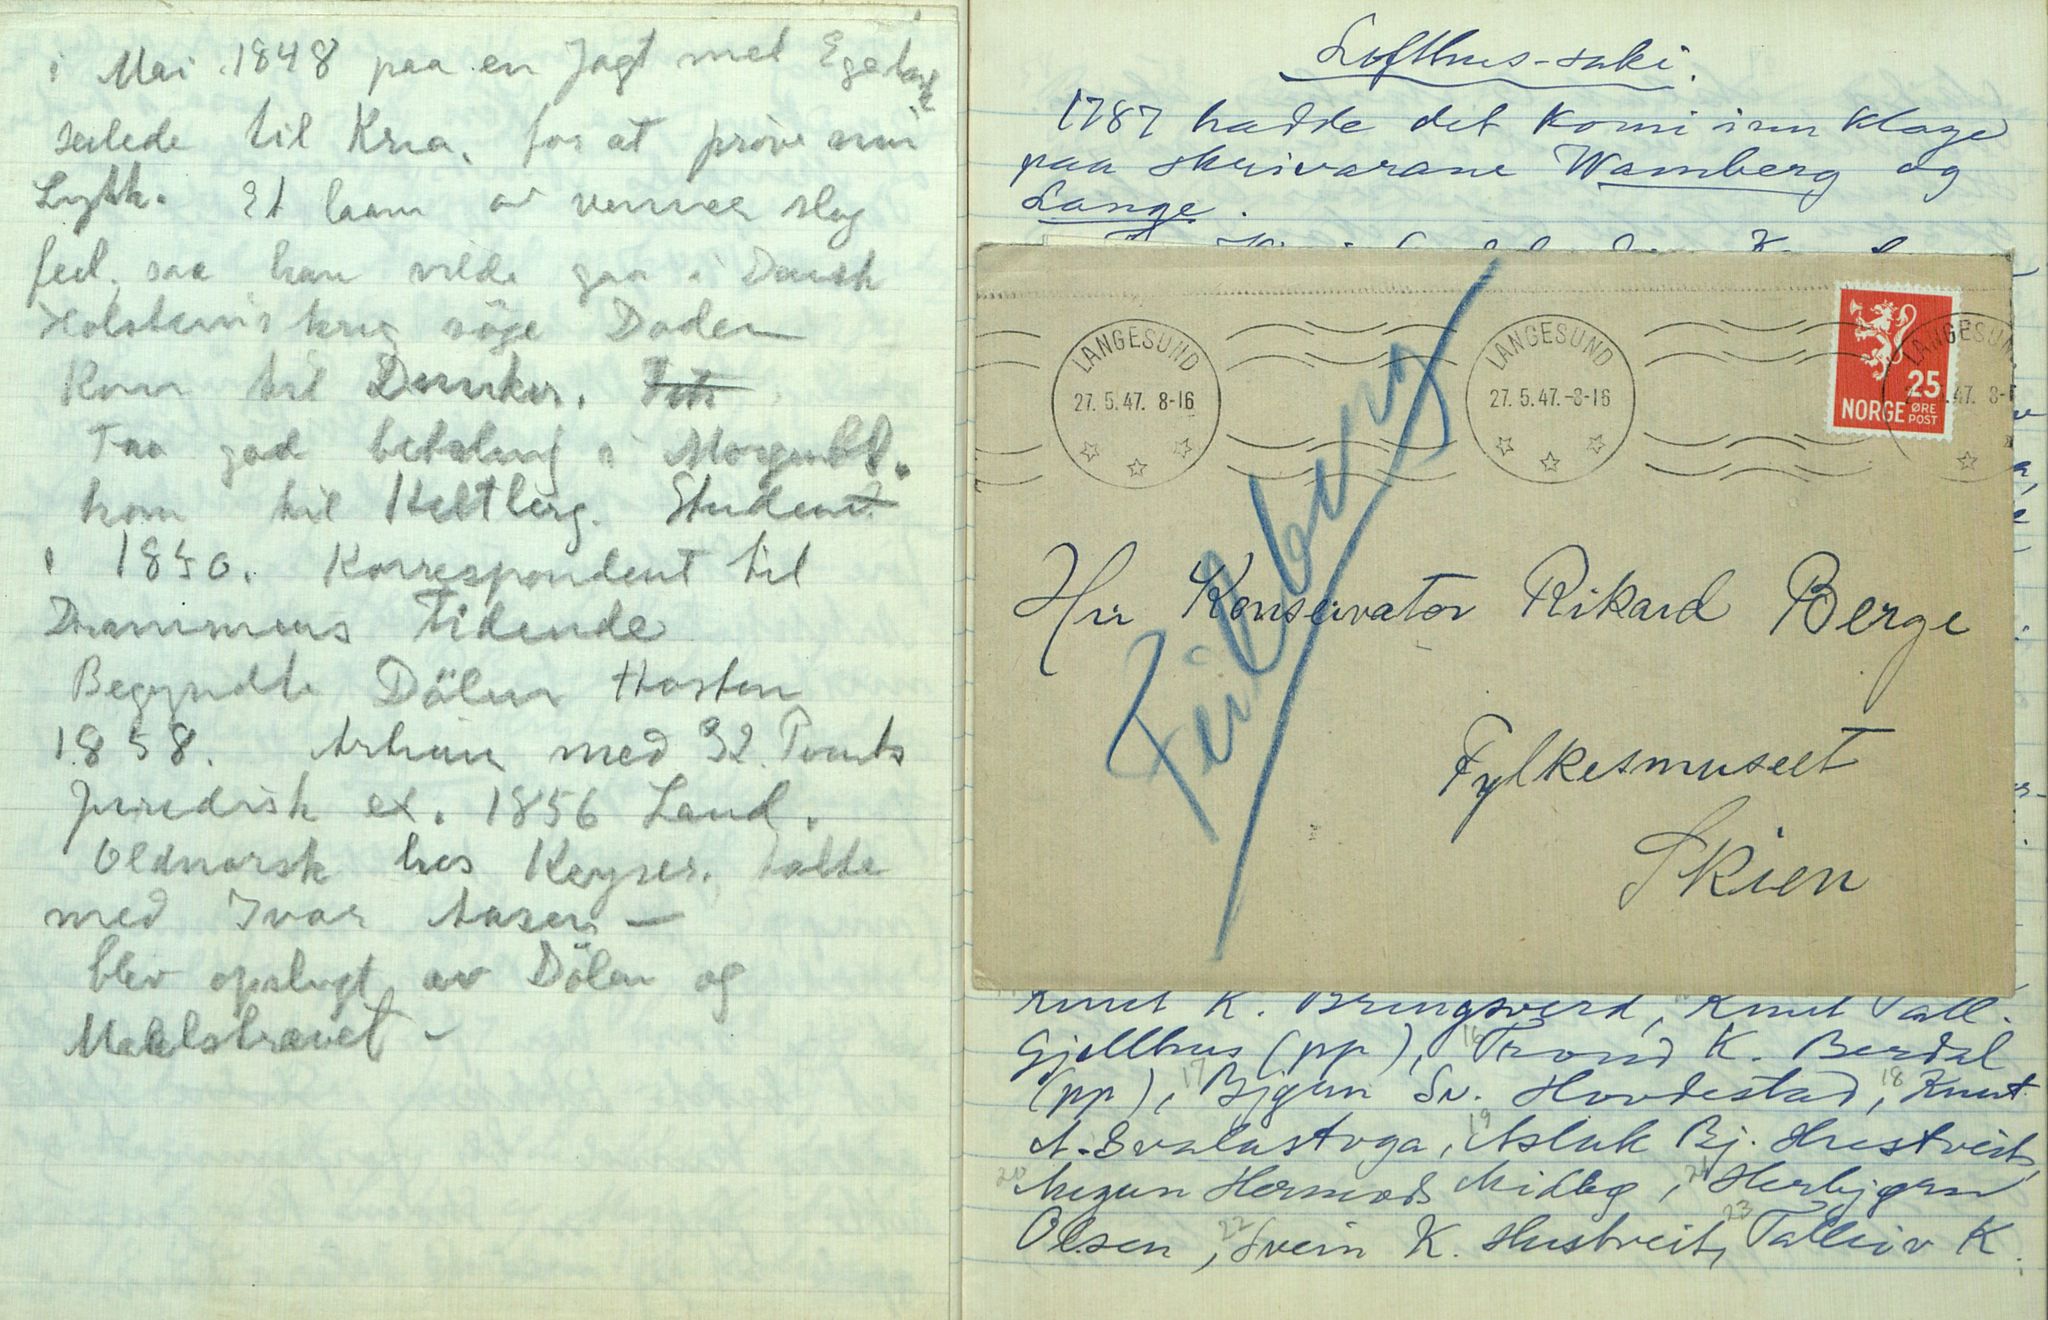 i Mai 1848 paa en Jagt med Egelast
seilede til Kria. for at prøve sin
Lykke. Et laan av venner slog
feil, saa han vilde gaa i Dansk
Holstenis krig søge Døden
Kom til Dunker.
Faa god betaling i Morgenbl.
kom til Heltberg. Student
i 1850. Korrespondent til
Drammens Tidende
Begyndte Dölen Høsten
1858. Artium med 32 Points
Juridisk ex. 1856 Laud.
Oldnorsk hos Keyser. talte
med Ivar Aasen —
blev opslugt av Dölen og
Maalstrævet —
Lofthus-saki.
1787 hadde det komi inn klage
paa skrivarane Wamberg og
Lange.
LANGESUND
27. 5. 47. 8-16
LANGESUND
27. 5. 47.-8-16
LANGESUN
47. 8-1
25
NORGE ØRE POST
Feilberg
Hr Konservator Rikard Berge
Fylkesmuseet
Skien
Knut K. Bringsverd, Knut Tall.
Gjellhus (pp), 16 Trond K. Berdal
(pp), 17 Bjgun Sv. Hovdestad, 18 Knut
A. Svalastoga, 19 Asluk Bj. Hustveit,
20 Augun Hermods Midbg, 21 Herbjørn
Olsen, 22 Svein K. Hustveit, 23 Talleiv K.